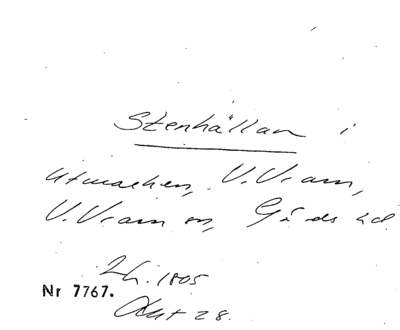 Stenhällan i
utmarken, V. Vram,
V. Vram sn, Gärds hd.
Lh. 1805
Nr 7767.
Akt 28.